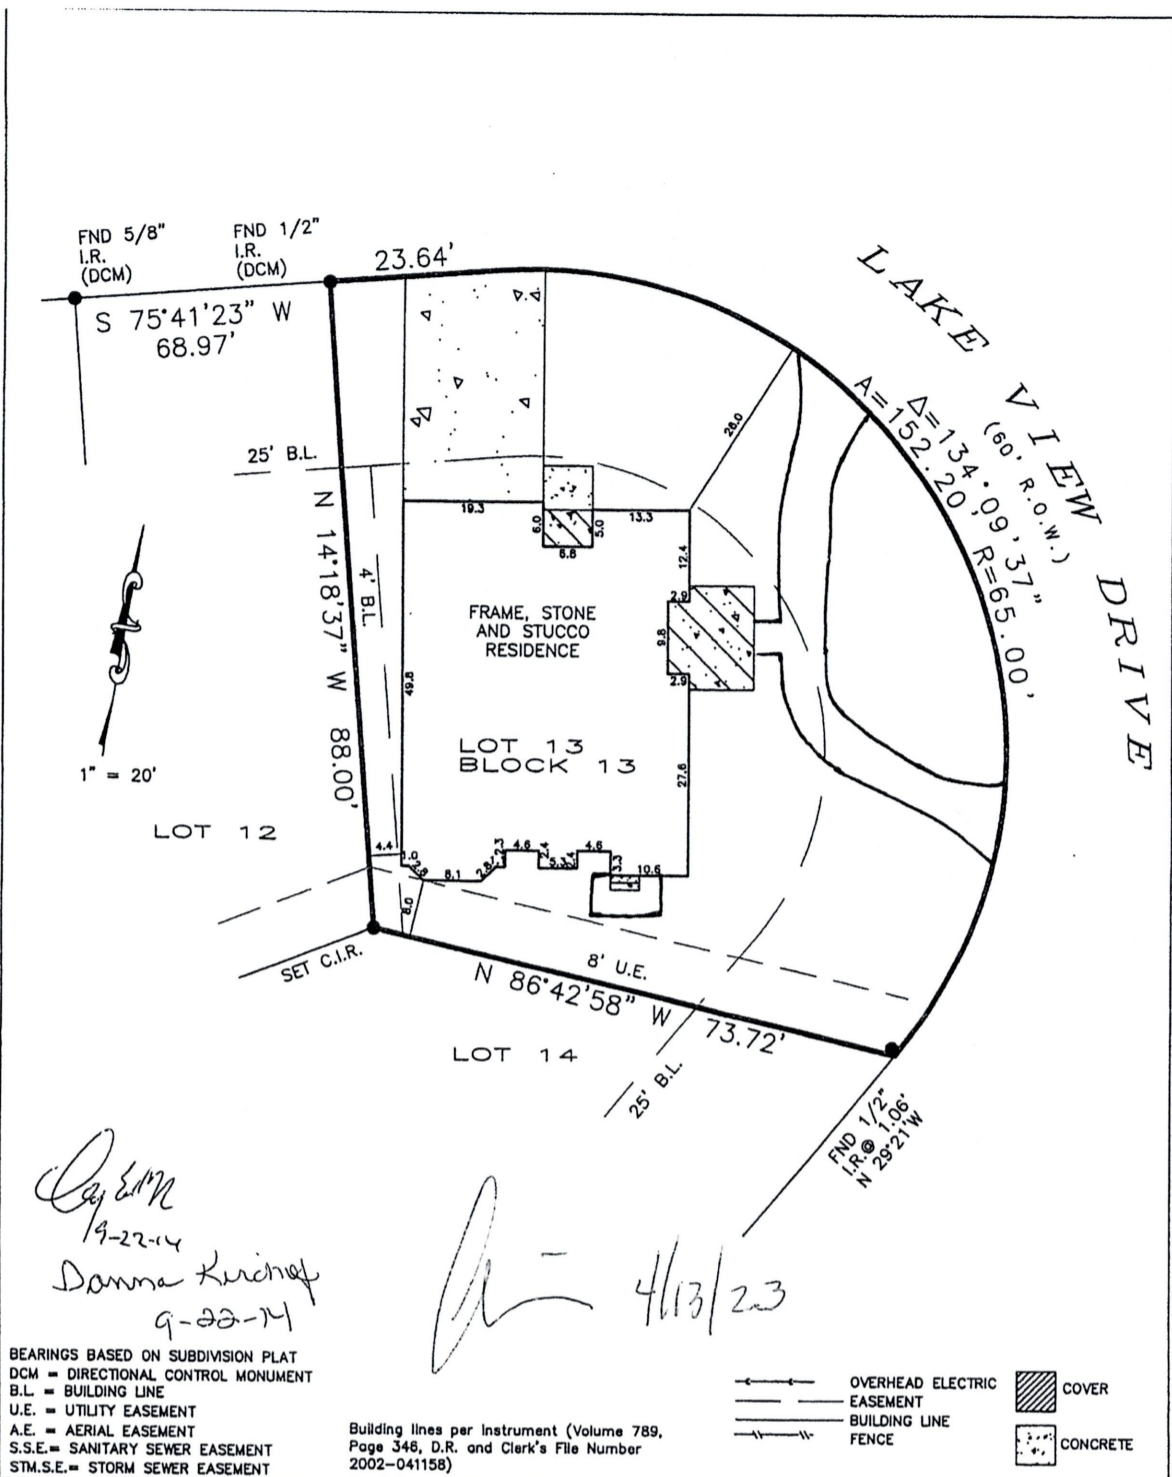 FND 5/8"
I.R.
(DCM)
FND 1/2"
I.R.
(DCM)
23.64'
S 75°41'23" W
68.97'
LAKE VIEW DRIVE
(60' R.O.W.)
Δ=134°09'37"
A=152.20' R=65.00'
26.0
25' B.L.
N 14°18'37" W 88.00'
4' B.L.
19.3
6.0
5.0
6.6
13.3
12.4
2.9
9.8
2.9
FRAME, STONE
AND STUCCO
RESIDENCE
49.8
27.6
LOT 13
BLOCK 13
1" = 20'
LOT 12
4.4
1.0
2.8
8.1
2.8
2.3
4.6
2.4
5.3
2.4
4.6
3.3
10.6
8.0
SET C.I.R.
8' U.E.
N 86°42'58" W 73.72'
LOT 14
25' B.L.
FND 1/2"
I.R.@ 1.06'
N 29°21'W
9-22-14
Donna Kirchof
9-22-14
4/13/23
BEARINGS BASED ON SUBDIVISION PLAT
DCM = DIRECTIONAL CONTROL MONUMENT
B.L. = BUILDING LINE
U.E. = UTILITY EASEMENT
A.E. = AERIAL EASEMENT
S.S.E.= SANITARY SEWER EASEMENT
STM.S.E.= STORM SEWER EASEMENT
Building lines per Instrument (Volume 789,
Page 346, D.R. and Clerk's File Number
2002-041158)
OVERHEAD ELECTRIC
EASEMENT
BUILDING LINE
FENCE
COVER
CONCRETE